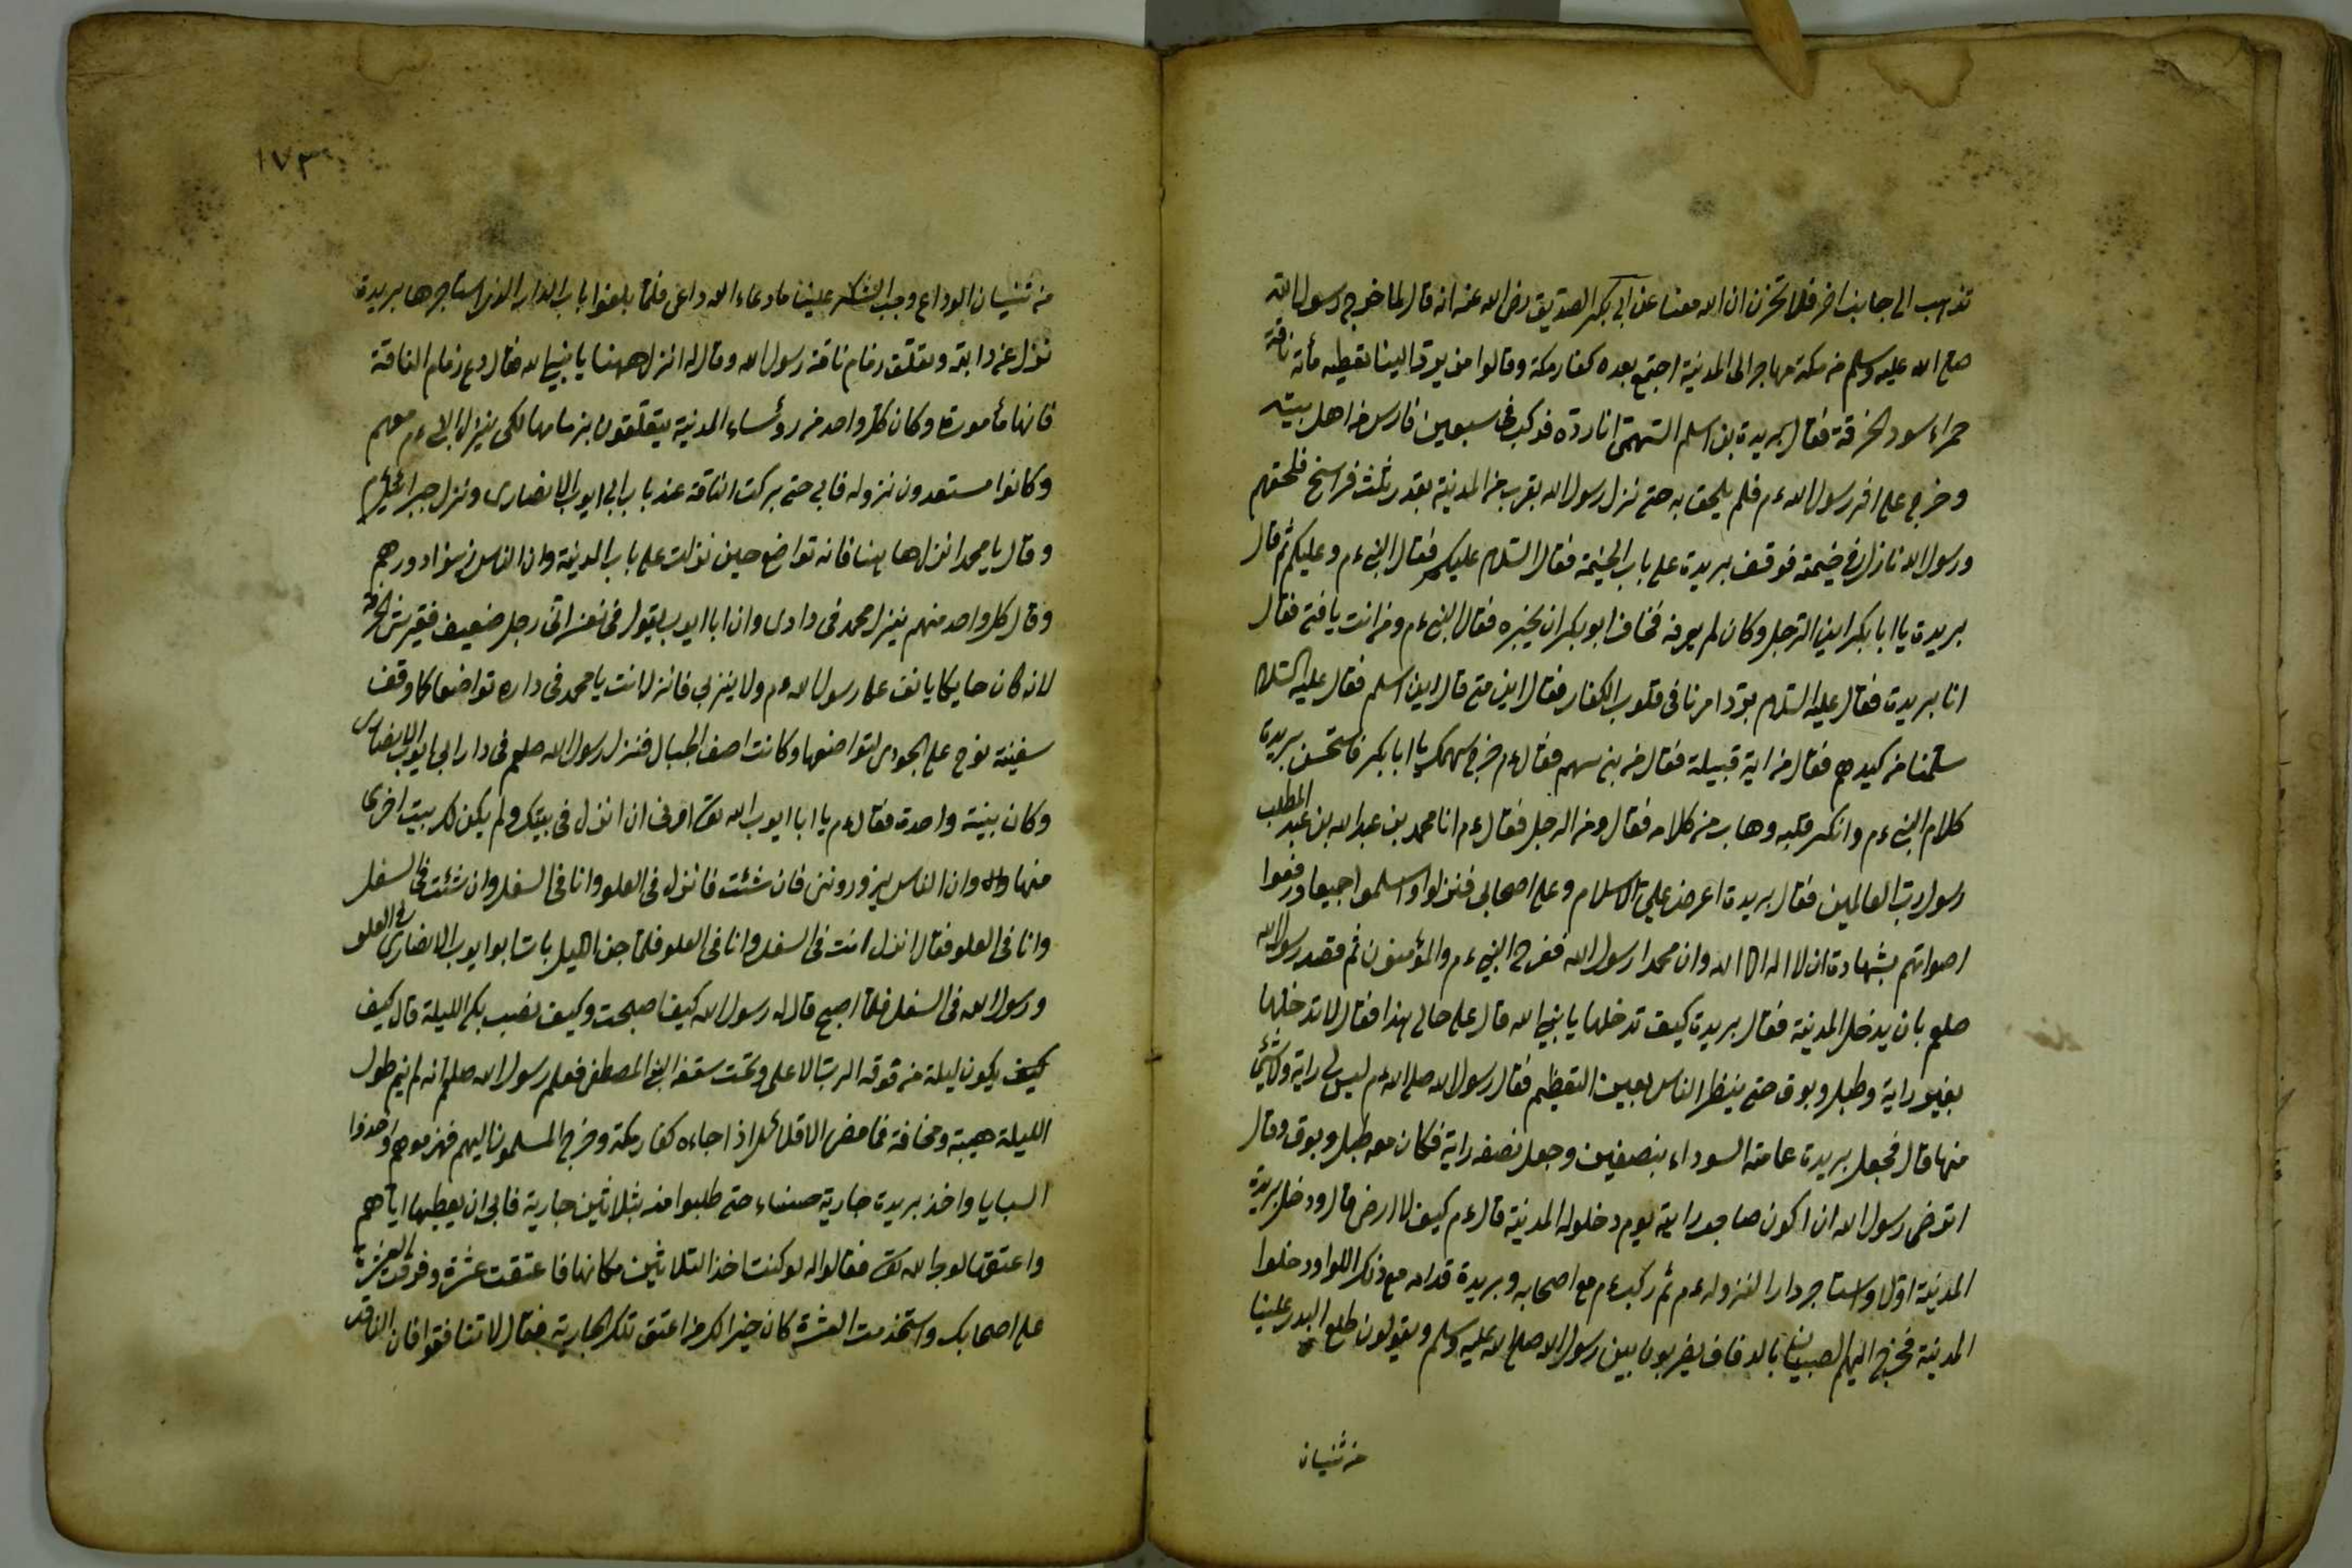 تذهب الى جانب اخر فلا تحزن ان الله معنا عن ابى بكر الصديق رضى الله عنه انه قال لما خرج رسول الله
صلى الله عليه وسلم من مكة مهاجرا الى المدينة اجتمع بعده كفار مكة وقالوا من يرد الينا نعطيه مأة ناقة
حمراء سود الحدقة فقال بريدة بن اسلم السهمى انا ردّه فركب فى سبعين فارس من اهل بيته
وخرج على اثر رسول الله ءم فلم يلحق به حتى نزل رسول الله بقرب من المدينة بقدر ثلث فراسخ فلحقهم
ورسول الله نازل فى خيمة فوقف بريدة على باب الخيمة فقال السلام عليكم فقال النبى ءم وعليكم ثم قال
بريدة يا ابا بكر اين الرجل وكان لم يعرفه فخاف ابو بكر ان يخبره فقال النبى ءم ومن انت يا فتى فقال
انا بريدة فقال عليه السلام برّد امرنا فى قلوب الكفار فقال ابن متى قال ابن اسلم فقال عليه السلام
سلّمنا من كيدهم فقال من اية قبيلة فقال من بنى سهم فقال ءم خرج سهمك يا ابا بكر فاستحسن بريدة
كلام النبى ءم وانكسر قلبه وهاب من كلامه فقال ومن الرجل فقال ءم انا محمد بن عبد الله بن عبد المطلب
رسول رب العالمين فقال بريدة اعرض علىّ الاسلام وعلى اصحابى فنزلوا واسلموا جميعا ورفعوا
اصواتهم بشهادة ان لا اله الا الله وان محمدا رسول الله ففرح النبى ءم والمؤمنون ثم قصد رسول الله
صلعم بان يدخل المدينة فقال بريدة كيف تدخلها يا نبى الله قال على حالى هذا فقال لا تدخلها
بغير راية وطبل وبوق حتى ينظر الناس بعين التعظيم فقال رسول الله صلى الله ءم ليس لى راية ولا شئ
منها قال فجعل بريدة عمامته السوداء بنصفين وجعل نصفه راية فكان معه طبل وبوق وقال
اترضى رسول الله ان اكون صاحب رايته يوم دخوله المدينة قال ءم كيف لا ارضى قال ودخل بريدة
المدينة اوّلا واستأجر دارا لنزوله ءم ثم ركب ءم مع اصحابه وبريدة قدامه مع ذلك اللوا ودخلوا
المدينة فخرج اليهم الصبيان بالدفاف يضربون بين رسول الله صلى الله عليه وسلم ويقولون طلع البدر علينا
من ثنيان
١٧٣
من ثنيان الوداع وجب الشكر علينا ما دعاء الله داعى فلما بلغوا باب الدار الذى استاجرها بريدة
نزل عن دابته وتعلّق زمام ناقة رسول الله وقال له انزل ههنا يا نبى الله فقال دع زمام الناقة
فانها مأمورة وكان كل واحد من رؤساء المدينة يتعلّقون بزمامها لكى ينزل النبى ءم معهم
وكانوا مستعدون نزوله فابى حتى بركت الناقة عند باب ابى ايوب الانصارى ونزل جبرائيل ءم
وقال يا محمد انزل ها هنا فانه تواضع حين نزلت على باب المدينة وان الناس زيّنوا دورهم
وقال كل واحد منهم ينزل محمد فى دارى وان ابا ايوب يقول فى نفسه انى رجل ضعيف فقير
لانه كان حايكا يانف على رسول الله ءم ولا ينزل بى فانزل انت يا محمد فى داره تواضعا كما وقف
سفينة نوح على الجودى لتواضعها وكانت اصغر الجبال فنزل رسول الله صلعم فى دار ابى ايوب الانصارى
وكان بيته واحدة فقال ءم يا ابا ايوب الله تعالى امرنى ان انزل فى بيتك ولم يكن لك بيت اخرى
منها وان الناس يزوروننى فان شئت فانزل فى العلو وانا فى السفل وان شئت فى السفل
وانا فى العلو فقال انزل انت فى السفل وانا فى العلو فلما جن الليل بات ابو ايوب الانصارى فى العلو
ورسول الله فى السفل فلما اصبح قال له رسول الله كيف اصبحت وكيف نصيب بك الليلة قال كيف
كيف يكون ليلة من فوقه الرب الاعلى وتحت سقفه النبى المصطفى فعلم رسول الله صلعم انه لم ينم طول
الليلة هيبة ومخافة فما مضى الا قلائل اذا جاءه كفار مكة وخرج المسلمون اليهم فهزموهم واخذوا
السبايا واخذ بريدة جارية حسناء حتى طلبوا منه بثلاثين جارية فابى ان يعطيها اياهم
واعتقها لوجه الله تعالى فقالوا له لو كنت اخذ الثلاثين مكانها فاعتقت عشرة وفرقت العشرة
على اصحابك واستخدمت العشرة كان خيرا لك من اعتق تلك الجارية فقال لا تنافقوا فان الناقد